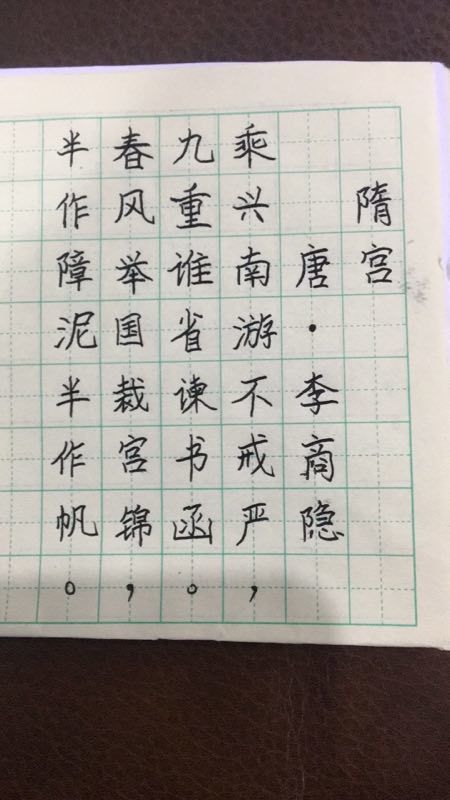 隋宫
唐·李商隐
乘兴南游不戒严，
九重谁省谏书函。
春风举国裁宫锦，
半作障泥半作帆。